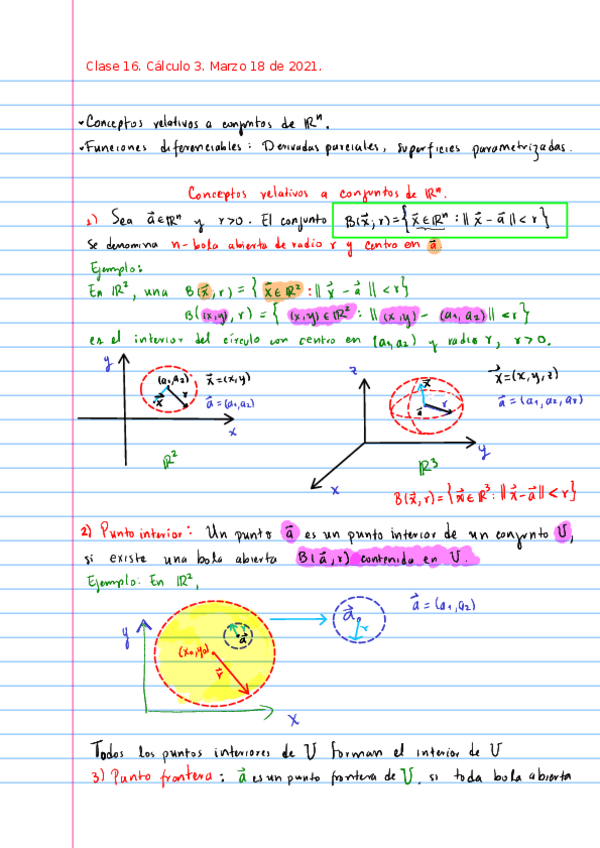 Clase 16. Cálculo 3. Marzo 18 de 2021.
• Conceptos relativos a conjuntos de ℝⁿ.
• Funciones diferenciables: Derivadas parciales, superficies parametrizadas.
Conceptos relativos a conjuntos de ℝⁿ.
1) Sea a⃗ ∈ ℝⁿ y r>0. El conjunto B(x⃗, r) = { x⃗ ∈ ℝⁿ : || x⃗ - a⃗ || < r }
se denomina n-bola abierta de radio r y centro en a⃗.
Ejemplo:
En ℝ², una B(x⃗, r) = { x⃗ ∈ ℝ² : || x⃗ - a⃗ || < r }
B((x,y), r) = { (x,y) ∈ ℝ² : || (x,y) - (a₁, a₂) || < r }
es el interior del círculo con centro en (a₁, a₂) y radio r, r>0.
y
(a₁, a₂)
x⃗
r
x⃗ = (x,y)
a⃗ = (a₁, a₂)
x
ℝ²
z
x⃗
a⃗
r
x⃗ = (x, y, z)
y
x
ℝ³
B(x⃗, r) = { x⃗ ∈ ℝ³ : || x⃗ - a⃗ || < r }
2) Punto interior: Un punto a⃗ es un punto interior de un conjunto U,
si existe una bola abierta B(a⃗, r) contenida en U.
Ejemplo: En ℝ²,
y
(x₀, y₀)
a⃗
r
a⃗
r
a⃗ = (a₁, a₂)
x
Todos los puntos interiores de U forman el interior de U
3) Punto frontera: a⃗ es un punto frontera de U, si toda bola abierta